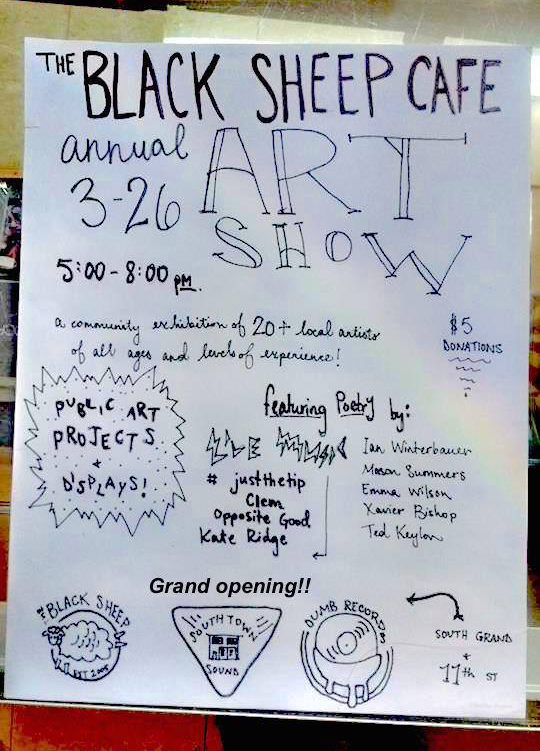 THE BLACK SHEEP CAFE
annual ART
3-26 SHOW
5:00-8:00 pm.
a community exhibition of 20+ local artists
of all ages and levels of experience!
$5
DONATIONS
PUBLIC ART
PROJECTS
+
DISPLAYS!
featuring Poetry by:
LIVE MUSIC
# justthetip
Clem
Opposite Good
Kate Ridge
Ian Winterbauer
Mason Summers
Emma Wilson
Xavier Bishop
Ted Keylon
Grand opening!!
THE BLACK SHEEP
EST 2005
SOUTH TOWN
SOUND
DUMB RECORDS
SOUTH GRAND
+
11th ST